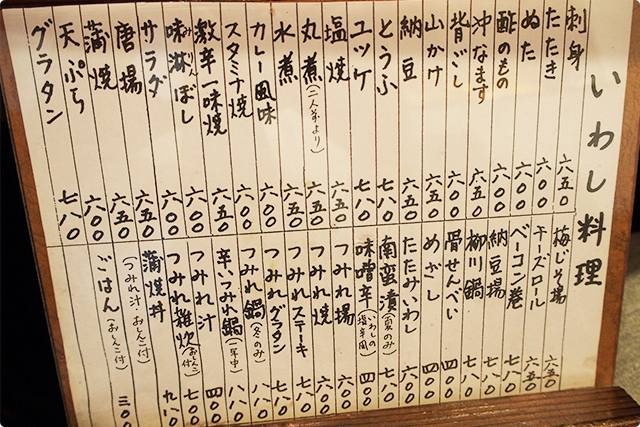 いわし料理
刺身 六五〇
たたき 六〇〇
ぬた 六〇〇
酢のもの 六〇〇
冲なます 六五〇
背ごし 六〇〇
山かけ 六五〇
納豆 六五〇
とうふ 七八〇
ユッケ 七八〇
塩焼 六五〇
丸煮(二人前より) 六五〇
水煮 六五〇
カレー風味 六〇〇
スタミナ焼 六〇〇
激辛一味焼 六〇〇
味淋ぼし 六〇〇
サラダ 六五〇
唐場 六五〇
蒲焼 六〇〇
天ぷら 七八〇
グラタン
梅じそ場 六五〇
チーズロール 六五〇
ベーコン巻 七八〇
納豆場 七八〇
柳川鍋 七八〇
骨せんべい 四〇〇
めざし 四〇〇
たたみいわし 六〇〇
南蛮漬(夏のみ) 七八〇
味噌辛(いわしの塩辛風) 四〇〇
つみれ場 六〇〇
つみれ焼 六〇〇
つみれステーキ 七八〇
つみれグラタン 七八〇
つみれ鍋(冬のみ) 八八〇
辛いつみれ鍋(一年中) 八八〇
つみれ汁 四〇〇
つみれ雑炊(おしんこ付) 七八〇
蒲焼丼 九八〇
(つみれ汁・おしんこ付)
ごはん(おしんこ付) 三〇〇